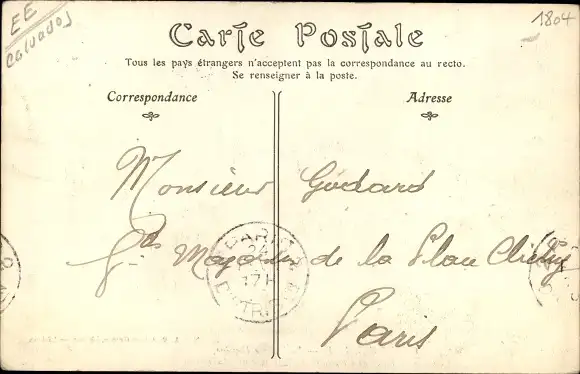 EE
Calvados
1804
Carte Postale
Tous les pays étrangers n'acceptent pas la correspondance au recto.
Se renseigner à la poste.
Correspondance
Adresse
Monsieur Godard
Gds Magasins de la Place Clichy
Paris
PARIS
17 H
DISTRIB